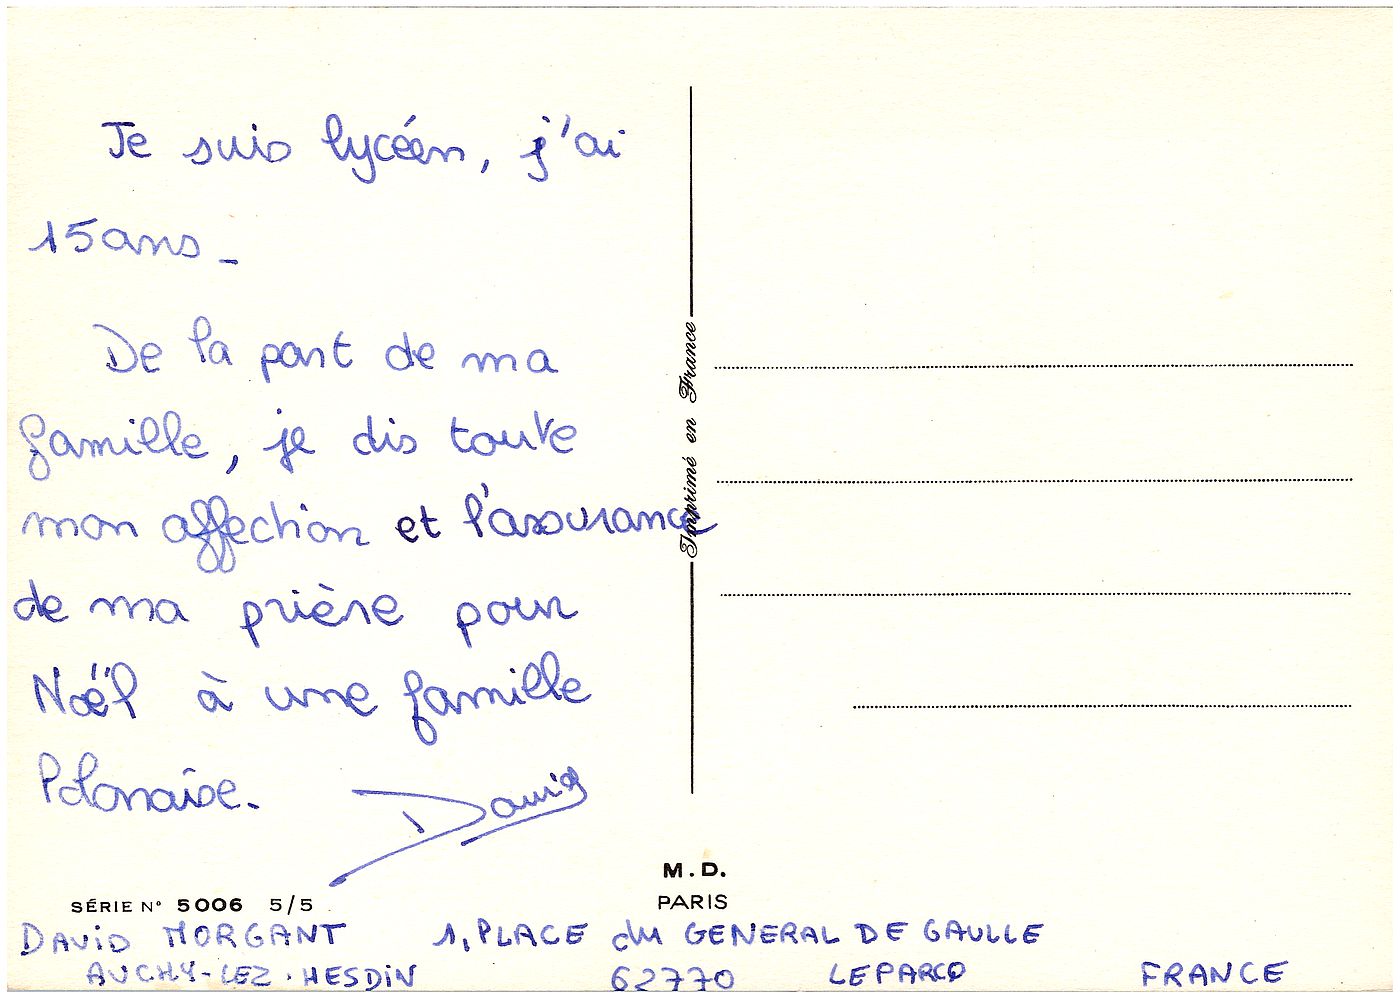 Je suis lycéen, j'ai
15 ans_
De la part de ma
famille, je dis toute
mon affection et l'assurance
de ma prière pour
Noël à une famille
Polonaise.
David
Imprimé en France
M.D.
PARIS
SÉRIE N° 5006 5/5
DAViD MORGANT 1, PLACE du GENERAL DE GAULLE
AUCHY-LEZ-HESDiN 62770 LEPARCQ FRANCE